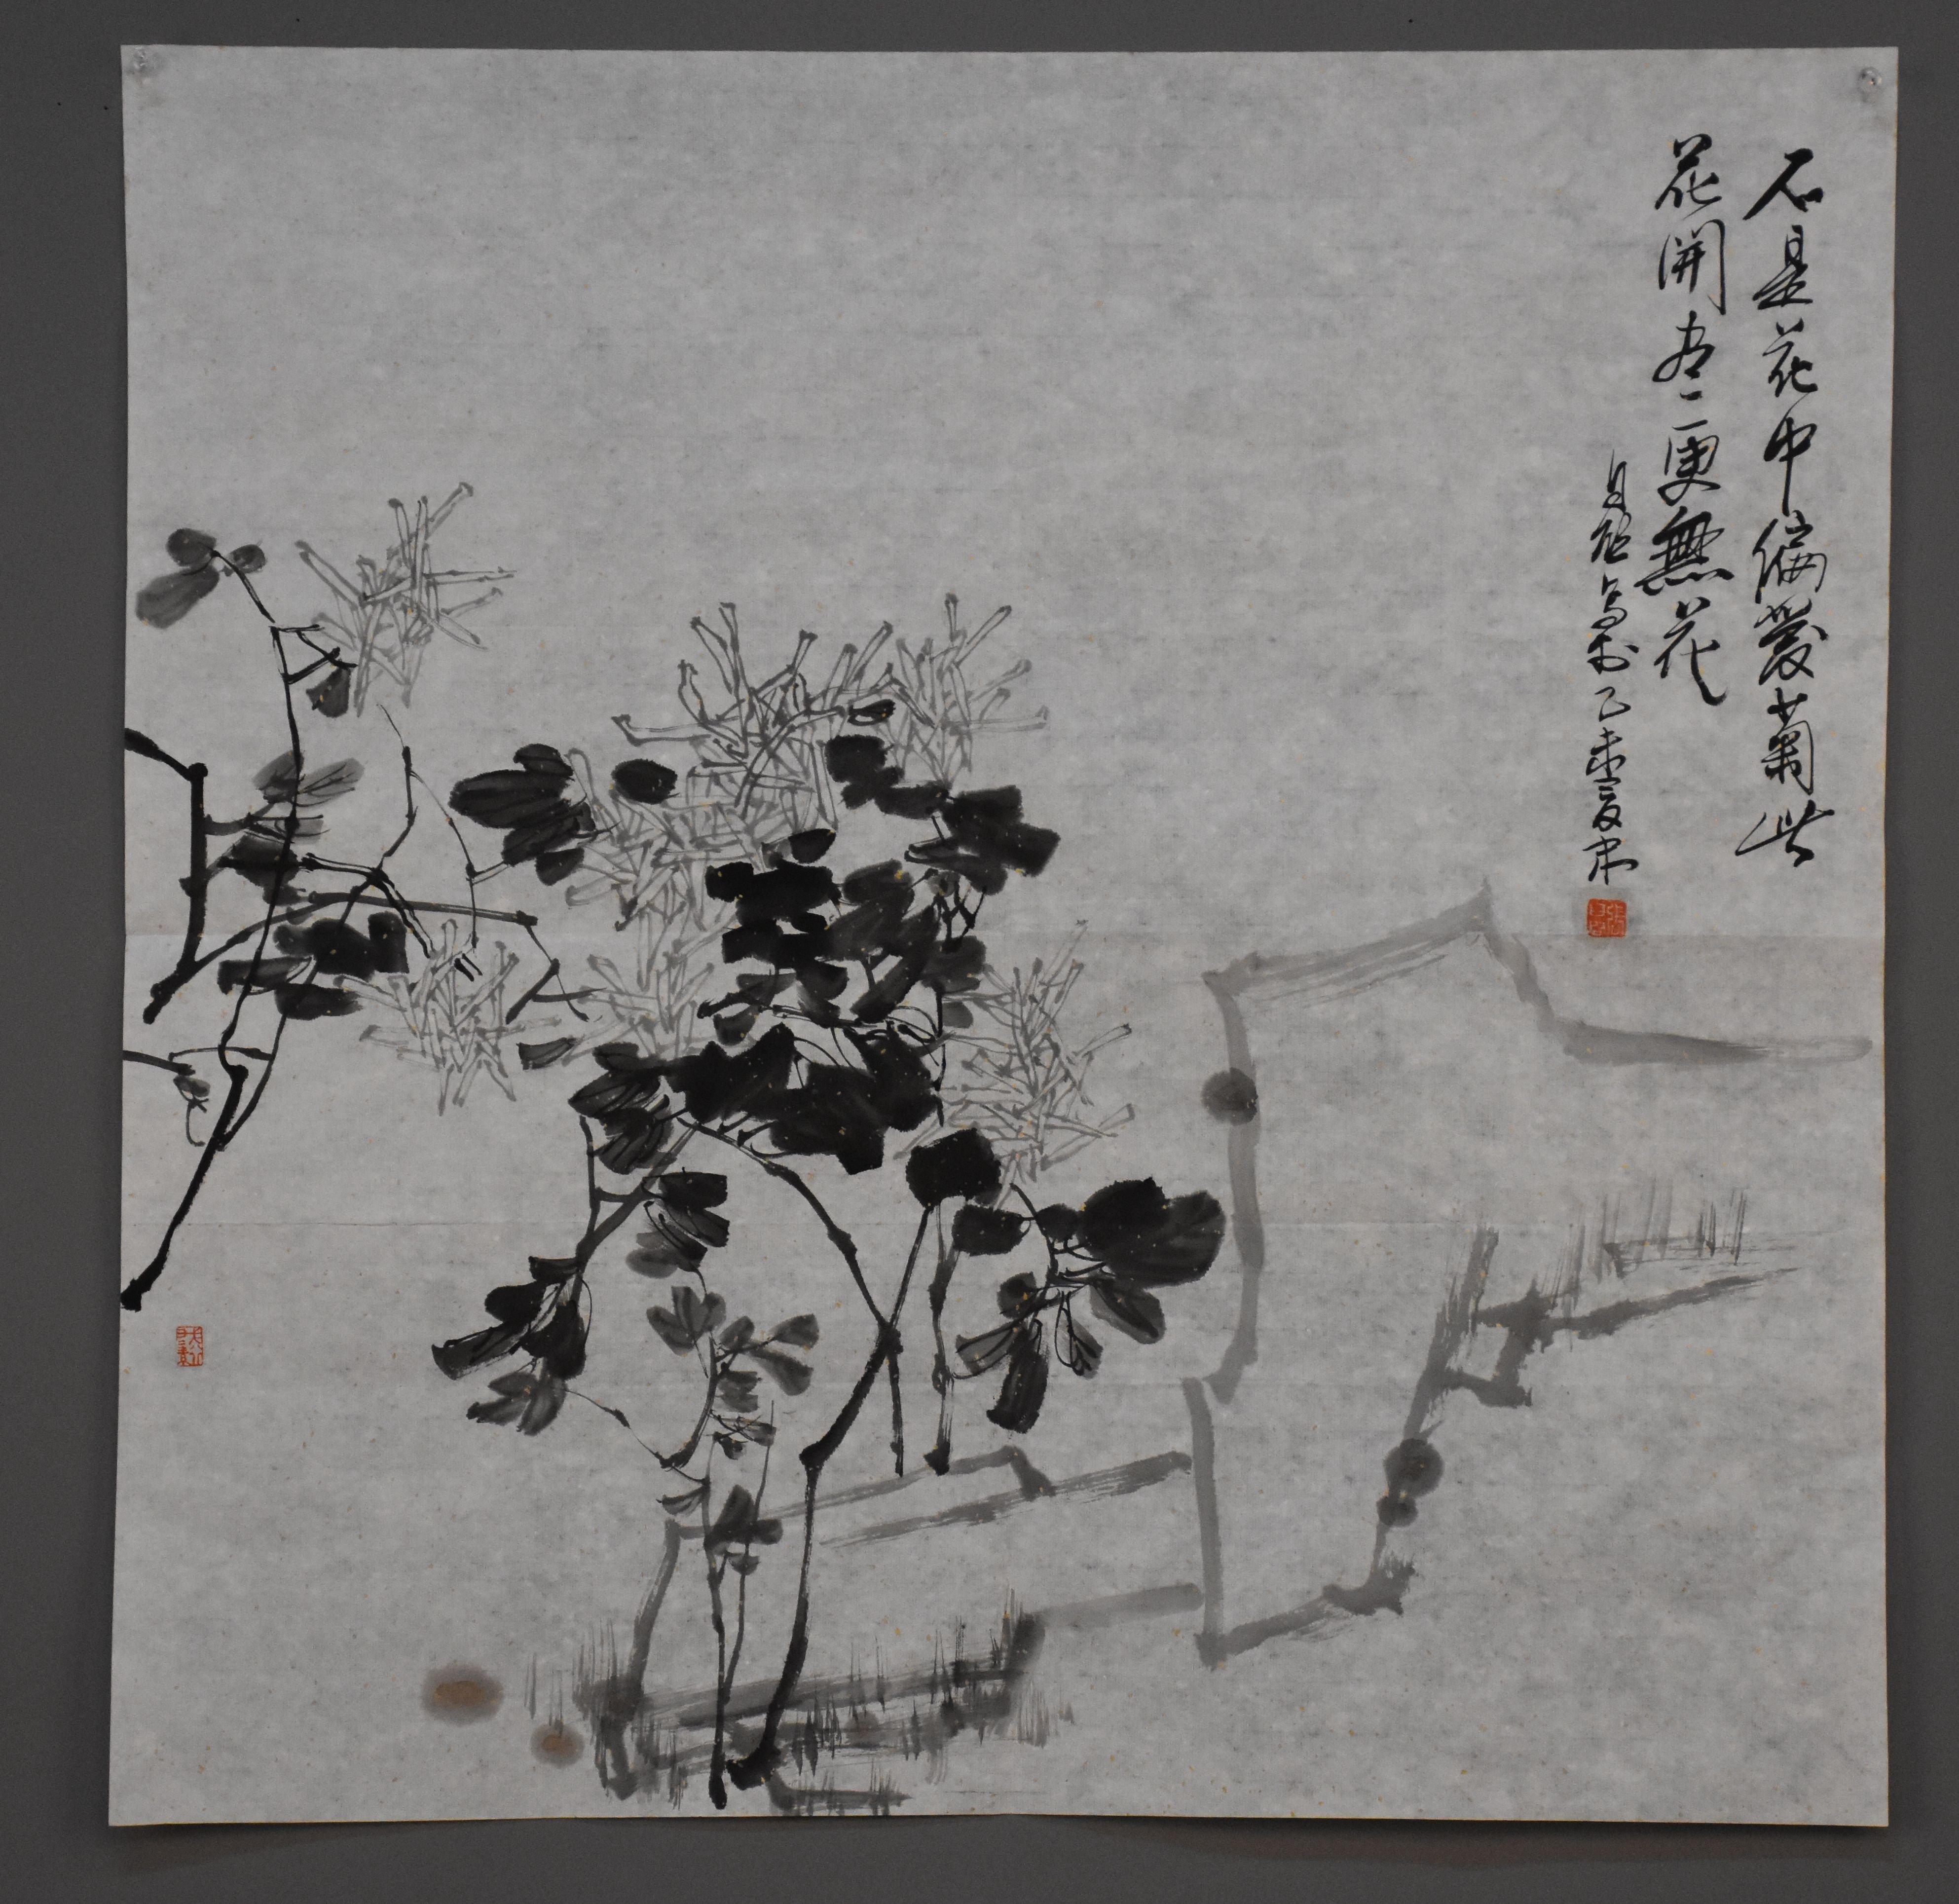 不是花中偏愛菊此
花開尽更無花
写於乙未夏末